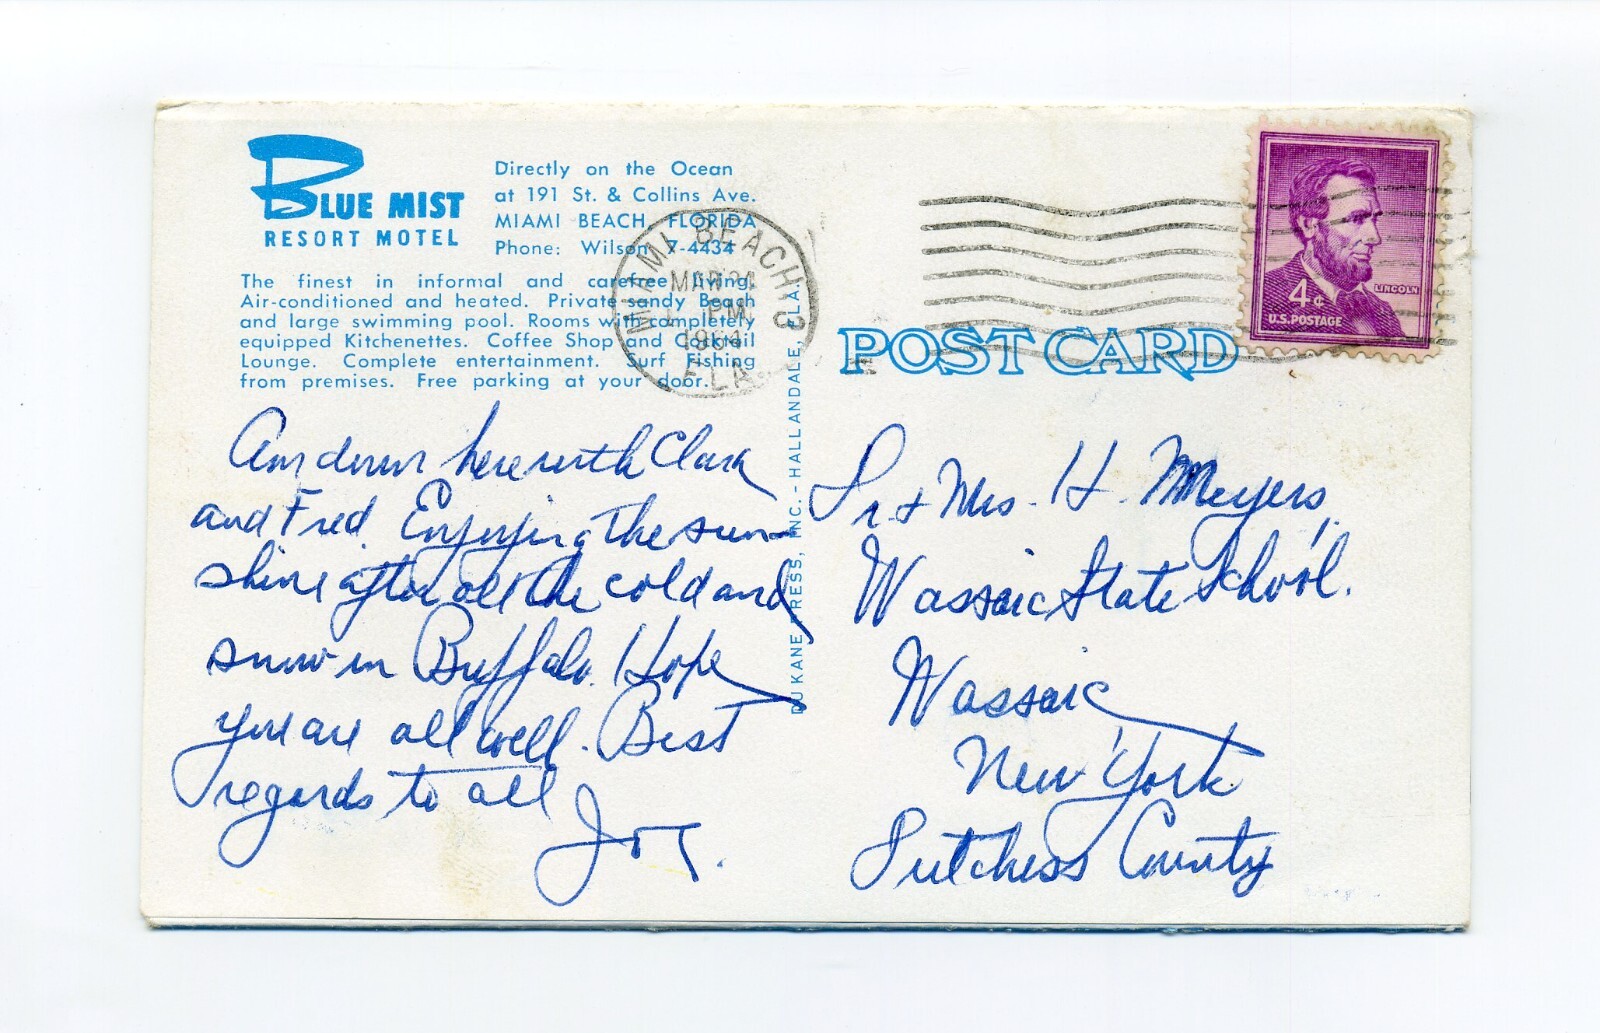 BLUE MIST
RESORT MOTEL
Directly on the Ocean
at 191 St. & Collins Ave.
MIAMI BEACH, FLORIDA
Phone: Wilson 7-4434
The finest in informal and carefree living.
Air-conditioned and heated. Private sandy Beach
and large swimming pool. Rooms with completely
equipped Kitchenettes. Coffee Shop and Cocktail
Lounge. Complete entertainment. Surf Fishing
from premises. Free parking at your door.
MIAMI BEACH
MAR 24
PM
1964
FLA.
Am down here with Clara
and Fred. Enjoying the sun-
shine after all the cold and
snow in Buffalo. Hope
you are all well. Best
regards to all
DUKANE PRESS, INC.-HALLANDALE, FLA.
POST CARD
4¢
LINCOLN
U.S. POSTAGE
Dr. + Mrs. H. Meyers,
Wassaic State School.
Wassaic
New York.
Dutchess County